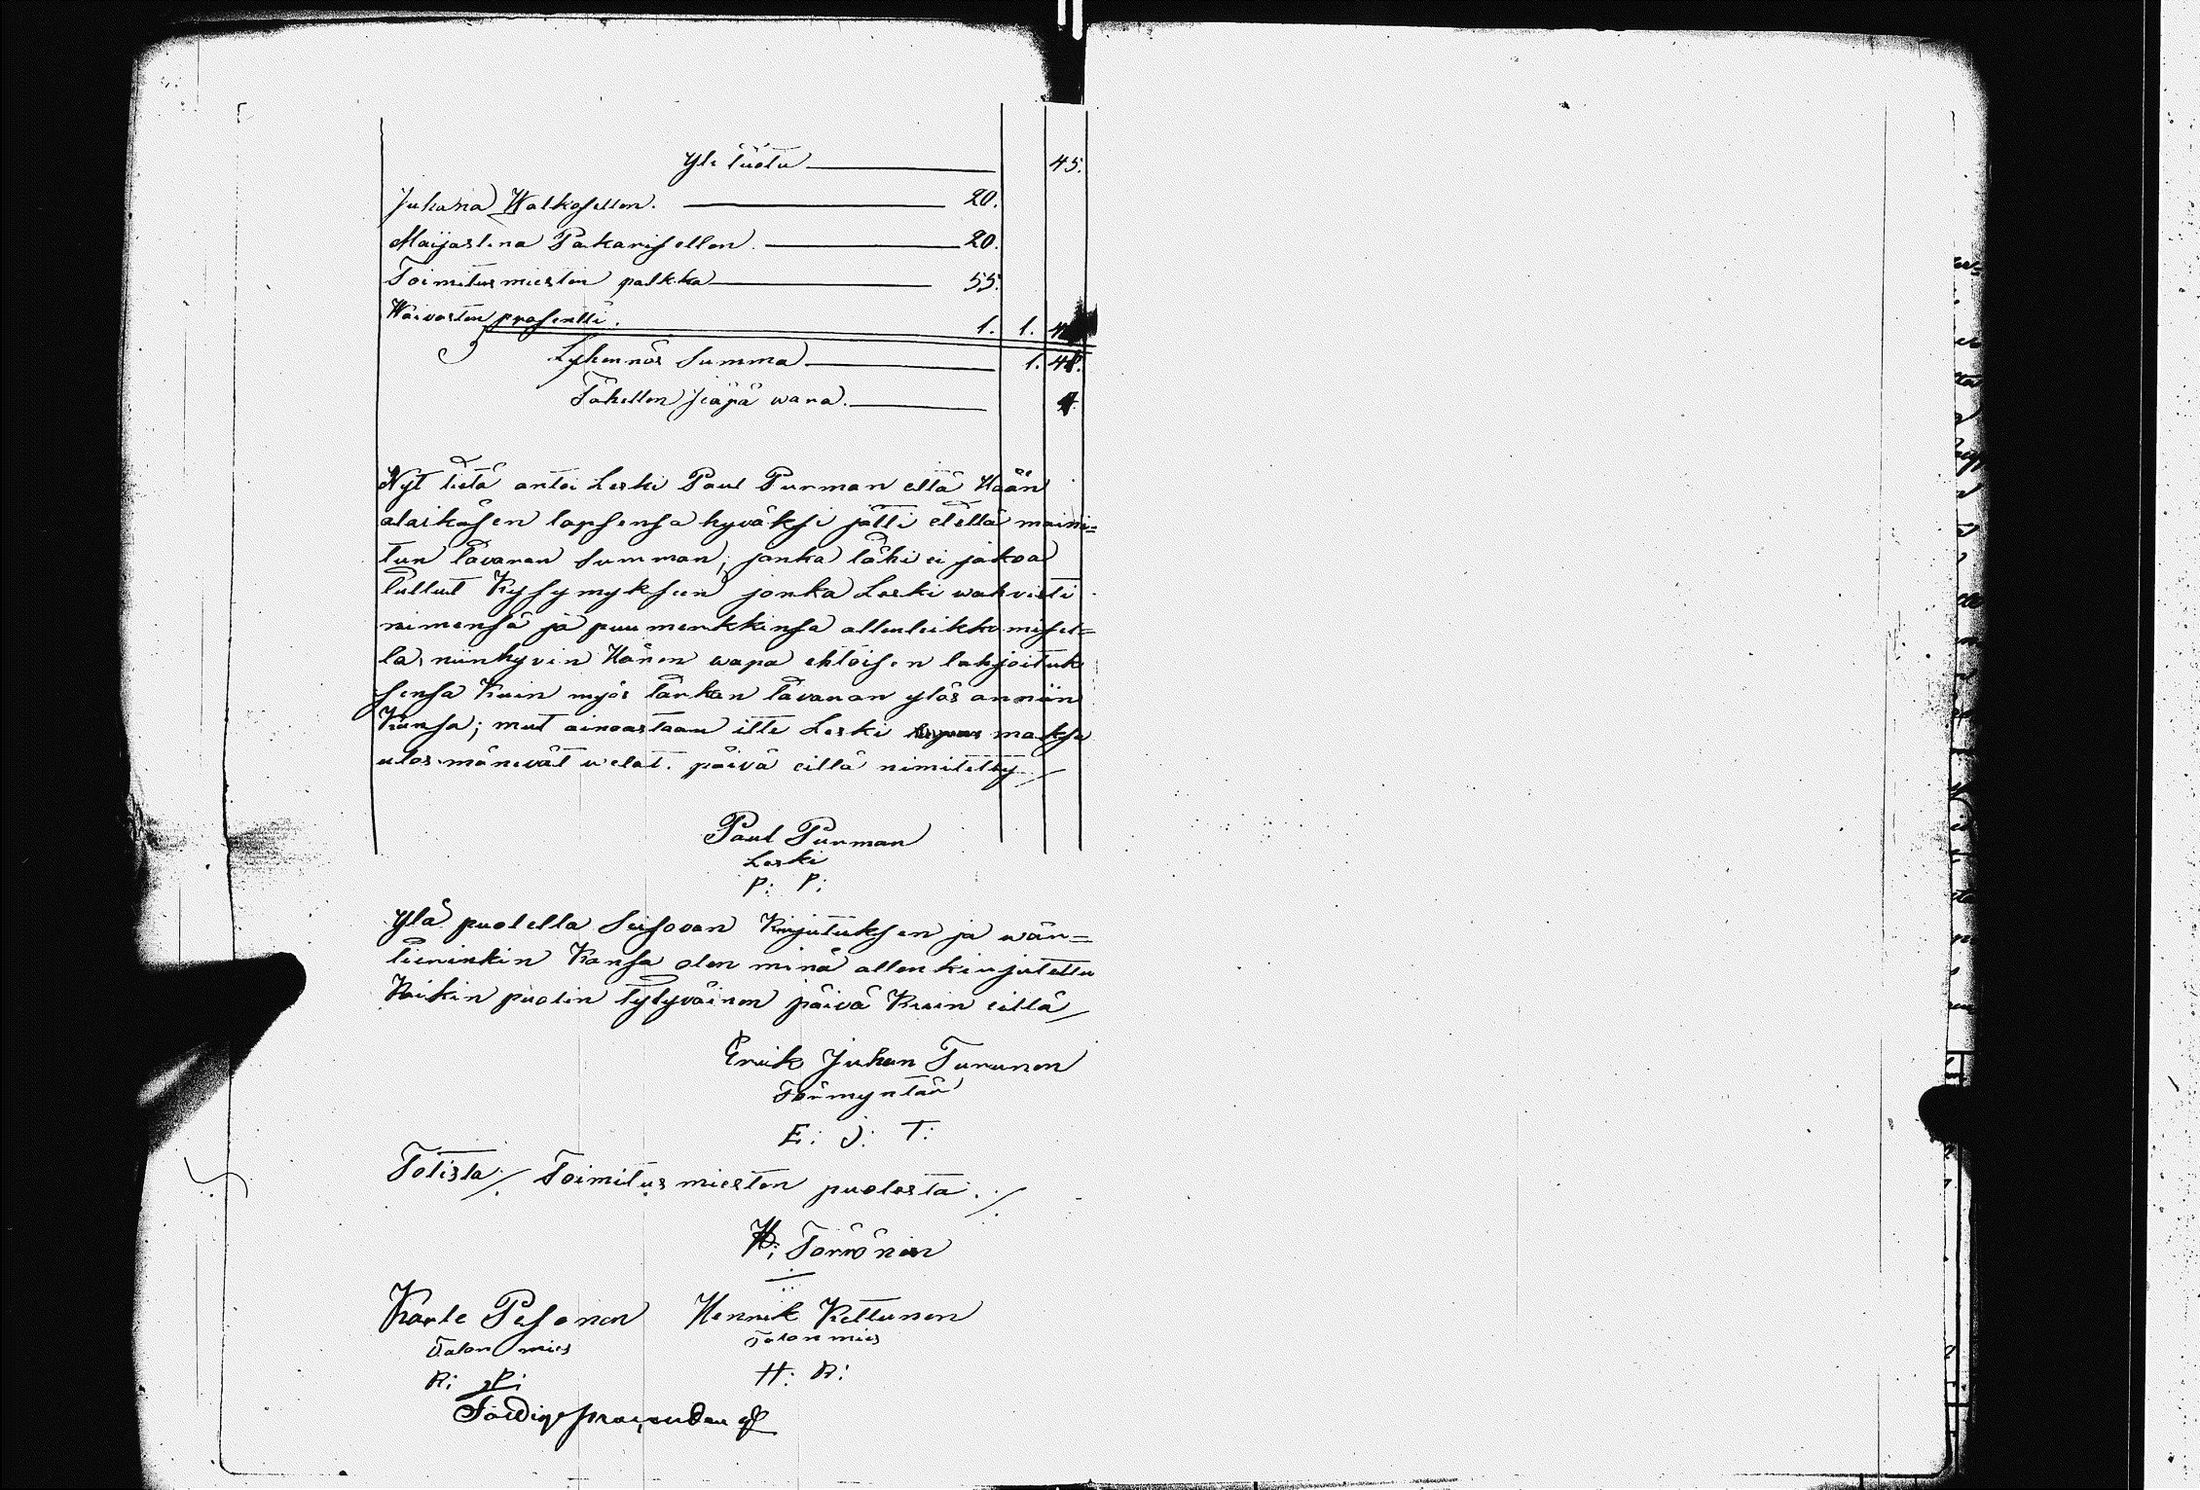 Yli tuotu 45.
Juhana Walkosellen. 20.
Maijastina Pakarisellen. 20.
Toimitusmiesten palkka 55.
Waivasten prosentti. 1. 1.
Lyhennös Summa 1. 48.
Tähellen jääpä wara.
Nyt tietä antoi Leski Paul Purman että Hään
alaikäsen lapsensa hyväksi jätti eisllä maini=
tun tavaran Summan, janka tähi ei jakoa
tullut Kysymyksen jonka Leski wahvisti
nimensä ja puumerkkinsa allenleikkamisel=
la, niinhyvin Hänen wapa ehtoisen lahjoituk
sensa Kuin myös tarken tavaran ylös annün
Kansa; mut ainoastaan itte Leski maksa
ulos mänevät welat. päivä eillä nimitetty
Paul Purman
Leski
P: P:
Ylä puolella Seisovan Kirjutuksen ja wär=
tieninkin Kansa olen minä allenkirjutettu
Kaikin puolin tytyväinen päivä Kuin eillä
Erik Juhan Turunen
Förmyntäri
E: J: T:
Totista Toimitus miesten puolesta.
H: Törrönen
Karle Pesonen Henrik Kettunen
Talon mies Talon mies
K: P: H: K: